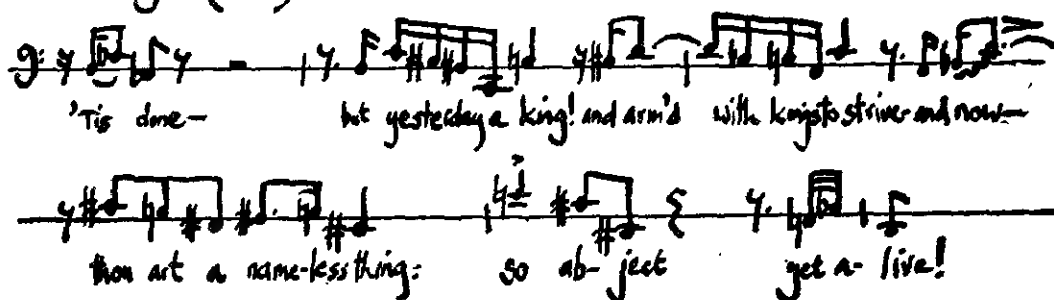 'Tis done— but yesterday a king! and arm'd with kings to strive—and now—
thou art a name-less thing: so ab-ject yet a-live!